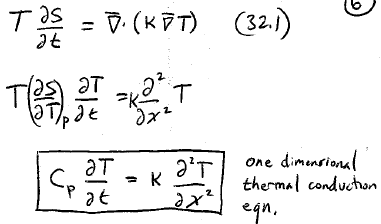 6
T ∂S/∂t = ∇⃗ · (K ∇⃗ T) (32.1)
T (∂S/∂T)_p ∂T/∂t = K ∂²/∂x² T
C_p ∂T/∂t = K ∂²T/∂x² one dimensional
thermal conduction
eqn.